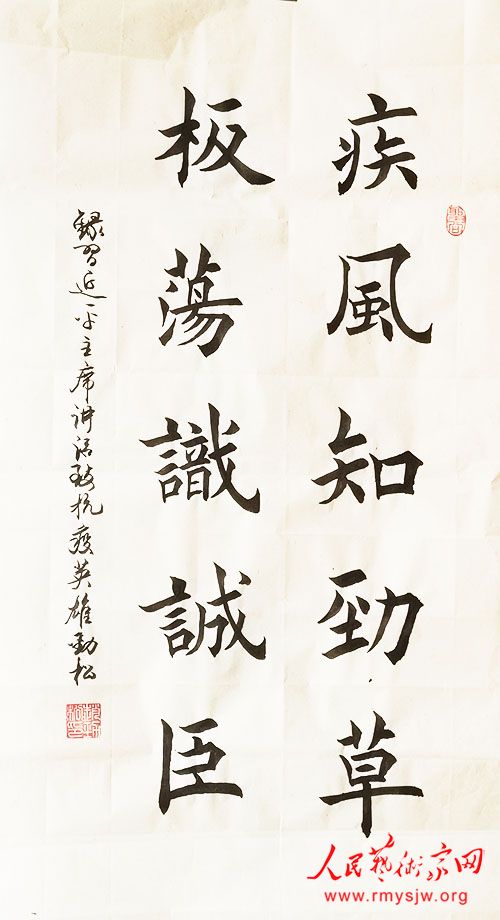 疾風知勁草
板蕩識誠臣
錄習近平主席讲话致抗疫英雄勁松
人民藝術家网
www.rmysjw.org